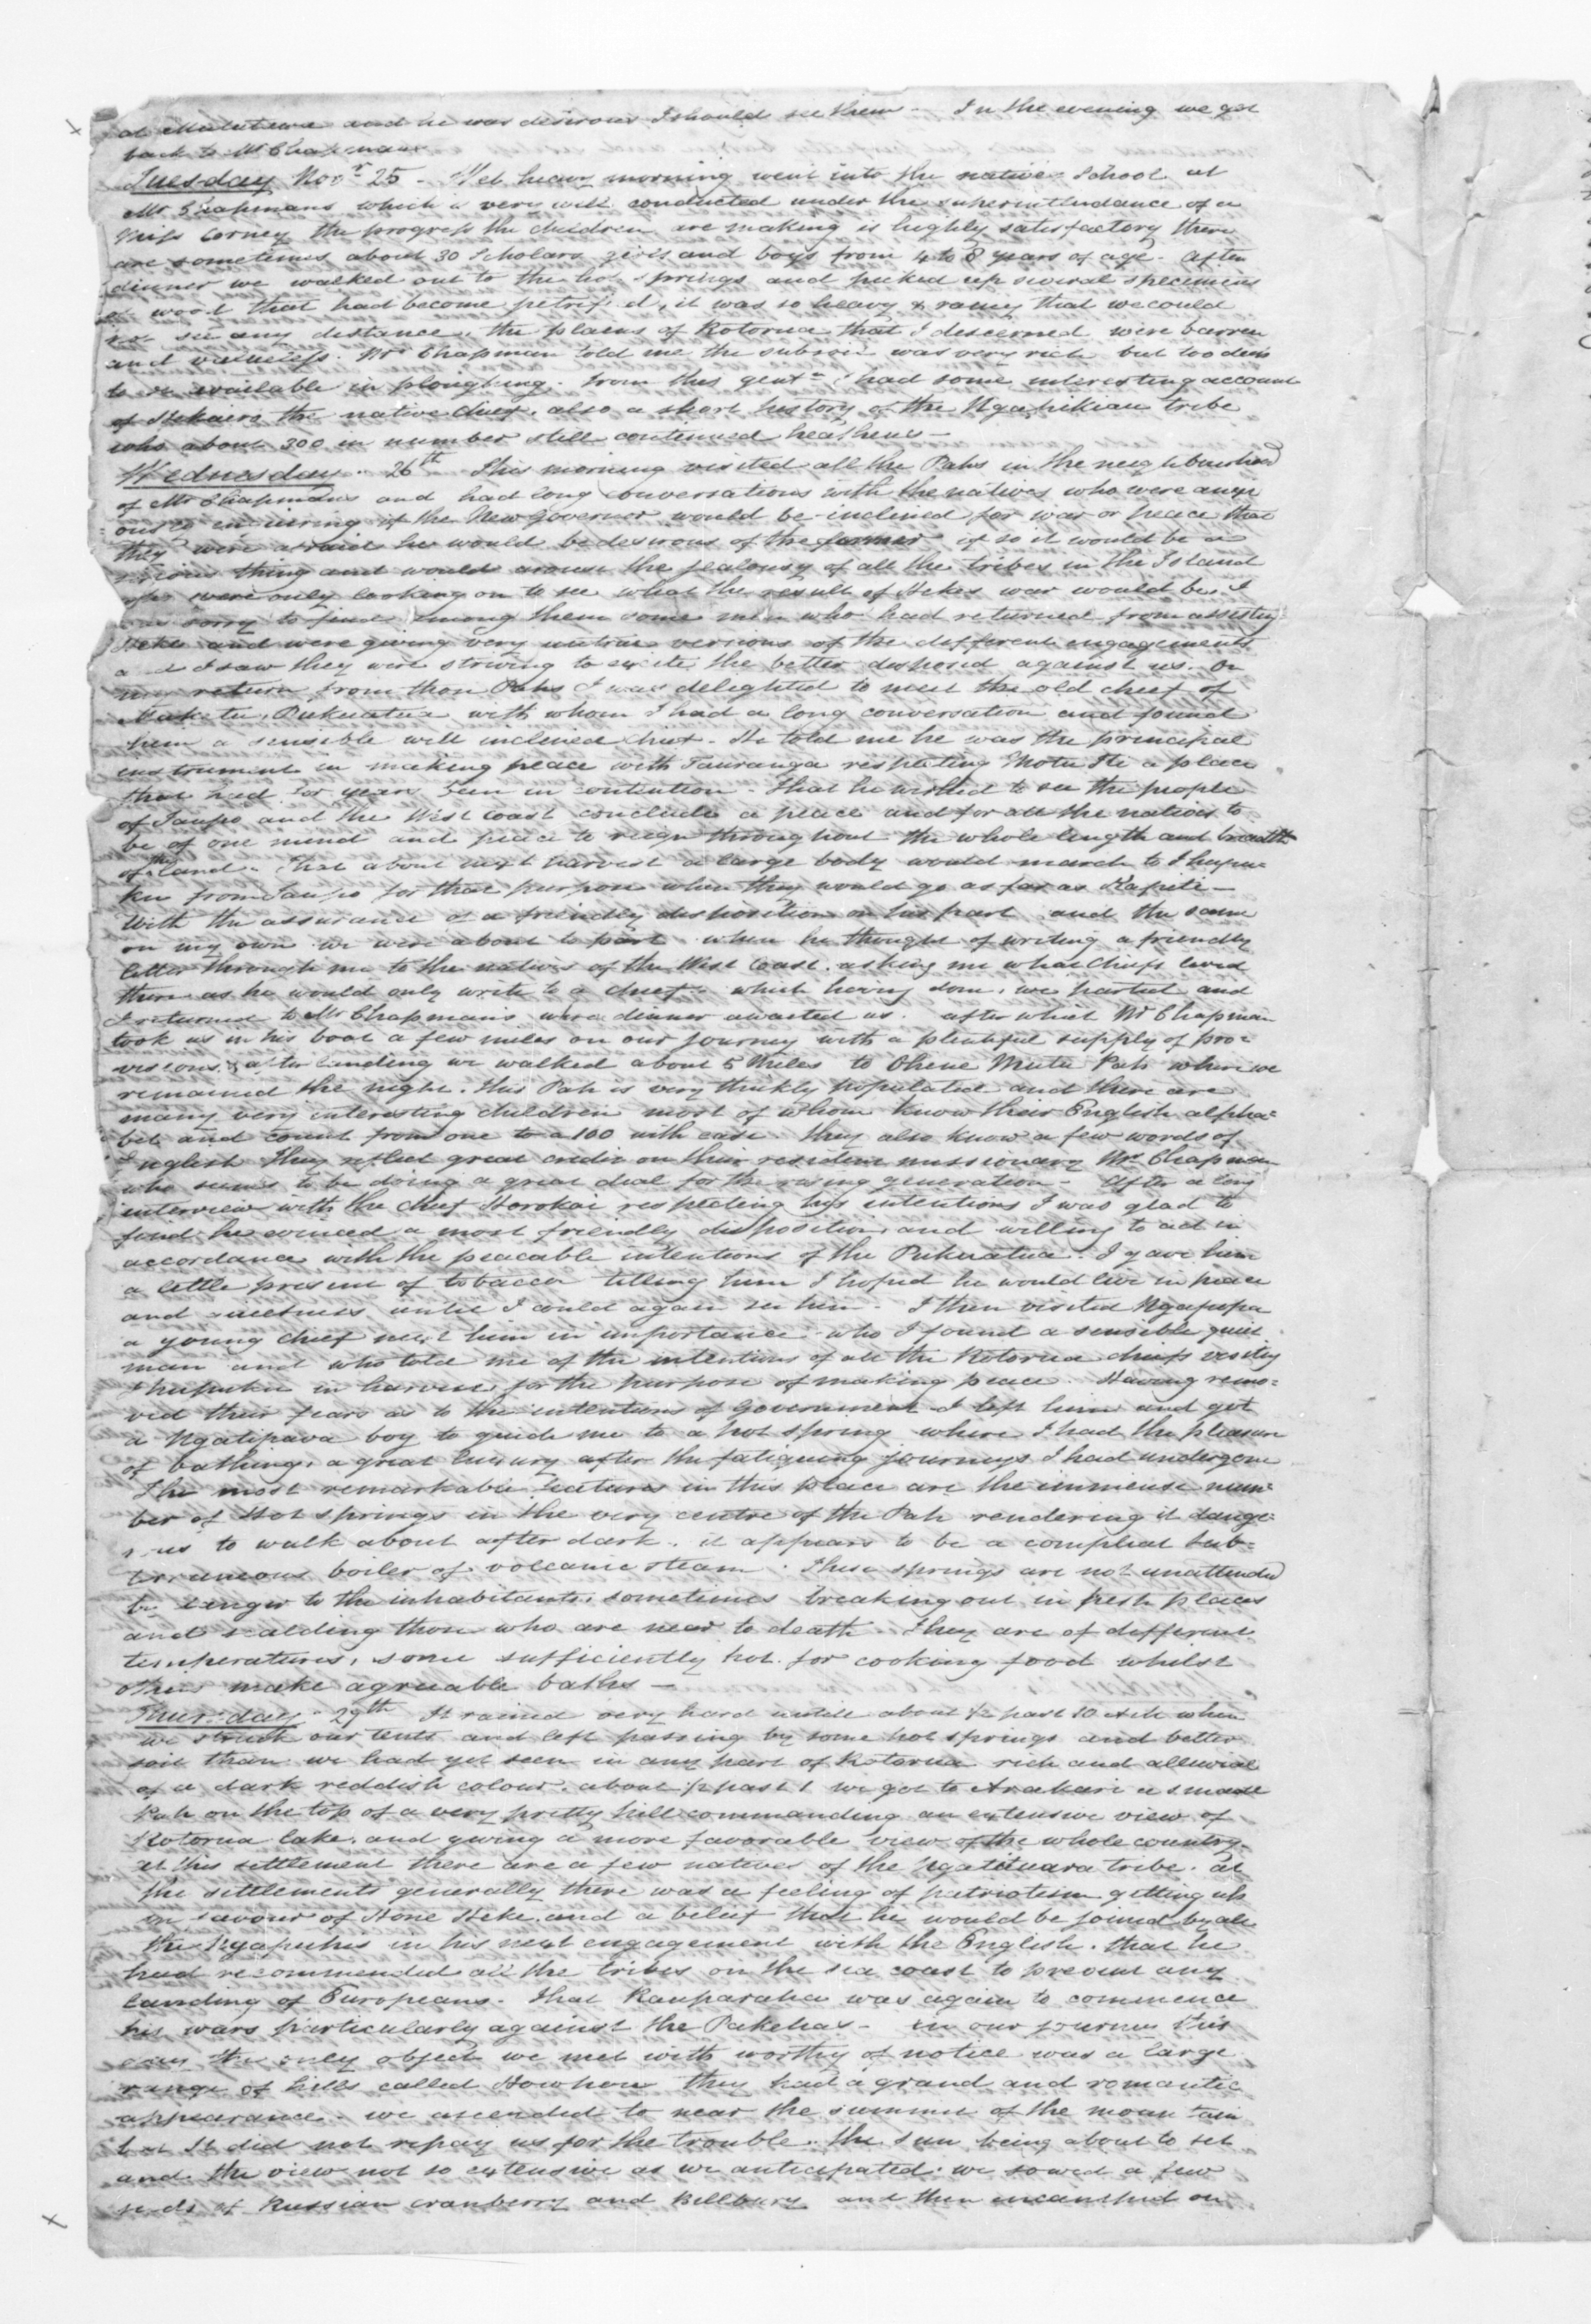 at and he was desirous I should see them - In the evening we got
back to Mr Chapmans
Tuesday Novr 25 - Wet heavy morning went into the native School at
Mr Chapmans which is very well conducted under the superintendance of a
Miss Corney the progress the children are making is highly satisfactory there
are sometimes about 30 Scholars girls and boys from 4 to 8 years of age - After
dinner we walked out to the hot springs and picked up several specimens
of wood that had become petrified, it was so heavy & rainy that we could
not see any distance, the plains of Rotorua that I descerned were barren
and valueless. Mr Chapman told me the subsoil was very rich but too deep
to be available in ploughing. From this gentn I had some interesting account
of the native chief, also a short history of the tribe
who about 300 in number still continued heathens -
Wednesday. 26th This morning visited all the Pahs in the neighbourhood
of Mr Chapmans and had long conversations with the natives who were anxi
ous in enquiring if the New Governor would be inclined for war or peace that
they were afraid he would be desirous of the former if so it would be a
serious thing and would arouse the jealousy of all the tribes in the Island
who were only looking on to see what the result of Hekes war would be. I
was sorry to find among them some men who had returned from assisting
Heke and were giving very untrue versions of the different engagements
and I saw they were striving to excite the better disposed against us. On
my return from those Pahs I was delighted to meet the old chief of
Maketu, Pukuatua with whom I had a long conversation and found
him a sensible well inclined chief - He told me he was the principal
instrument in making peace with Tauranga respecting Motu Iti a place
that had for years been in contention - that he wished to see the people
of Taupo and the West Coast conclude a peace and for all the natives to
be of one mind and peace to reign throughout the whole length and breadth
of the land. That about next harvest a large body would march to
from Taupo for that purpose when they would go as far as Kapiti -
With the assurance of a friendly disposition on his part and the same
on my own we were about to part when he thought of writing a friendly
letter through me to the natives of the West Coast, asking me what Chiefs lived
there as he would only write to a chief - which being done, we parted and
I returned to Mr Chapmans were dinner awaited us. after which Mr Chapman
took us in his boat a few miles on our journey with a plentiful supply of pro=
visions & after landing we walked about 5 Miles to Ohene Mutu Pah where we
remained the night. This Pah is very thickly populated and there are
many very interesting children most of whom know their English alpha=
bet and count from one to a 100 with ease they also know a few words of
English They reflect great credit on their resident missionary Mr Chapman
who seems to be doing a great deal for the rising generation - After a long
interview with the chief Horokai respecting his intentions I was glad to
find he evinced a most friendly disposition and willing to act in
accordance with the peacable intentions of the Pukuatua. I gave him
a little present of tobacco telling him I hoped he would live in peace
and quietness until I could again see him - I then visited Ngapupa
a young chief next him in importance who I found a sensible quiet
man and who told me of the intentions of all the Rotorua chiefs visiting
in harvest for the purpose of making peace. Having remo=
ved their fears as to the intentions of Government I left him and got
a Ngatipava boy to guide me to a hot spring where I had the pleasure
of bathing, a great luxury after the fatiguing journeys I had undergone
The most remarkable features in this place are the immense num=
ber of Hot springs in the very centre of the Pah rendering it dange=
rous to walk about after dark, it appears to be a compleat sub=
terraneous boiler of volcanic steam. These springs are not unattended
by danger to the inhabitants, sometimes breaking out in fresh places
and scalding those who are near to death. They are of different
temperatures, some sufficiently hot for cooking food whilst
others make agreeable baths -
Thursday 29th It rained very hard untill about ½ past 10 when
we struck our tents and left passing by some hot springs and better
soil than we had yet seen in any part of Rotorua rich and alluvial
of a dark reddish colour. about ½ past 1 we got to Arakari a small
Pah on the top of a very pretty hill commanding an extensive view of
Rotorua lake, and giving a more favorable view of the whole country.
at this settlement there are a few natives of the tribe. at
the settlements generally there was a feeling of patriotism getting up
in favour of Hone Heke, and a belief that he would be joined by all
the Ngapuhis in his next engagement with the English. that he
had recommended all the tribes on the sea coast to prevent any
landing of Europeans. That Rauparaha was again to commence
his wars particularly against the Pakehas - in our journey this
day the only object we met with worthy of notice was a large
range of hills called they had a grand and romantic
appearance. we ascended to near the summit of the mountain
but it did not repay us for the trouble. the sun being about to set
and the view not so extensive as we anticipated. we sowed a few
seeds of Russian cranberry and Billbury and then encamped on